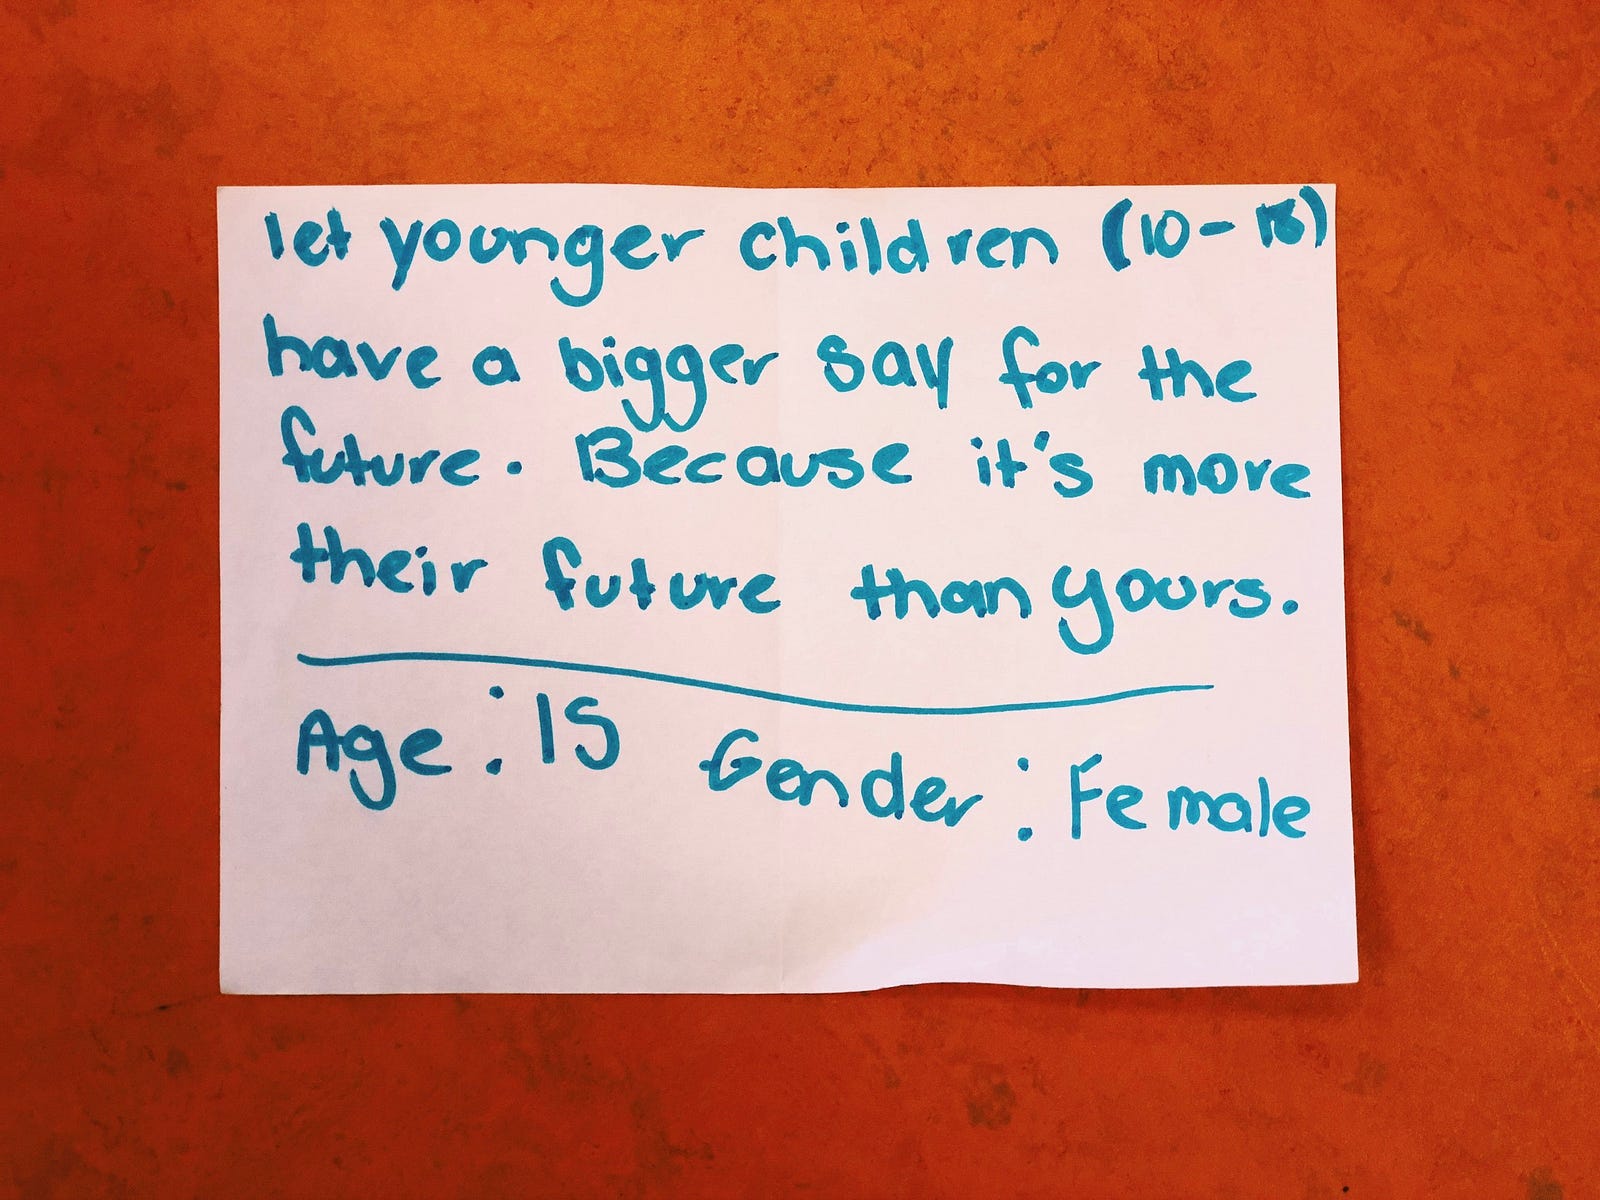 let younger children (10-18)
have a bigger say for the
future. Because it's more
their future than yours.
Age : 15 Gender : Female